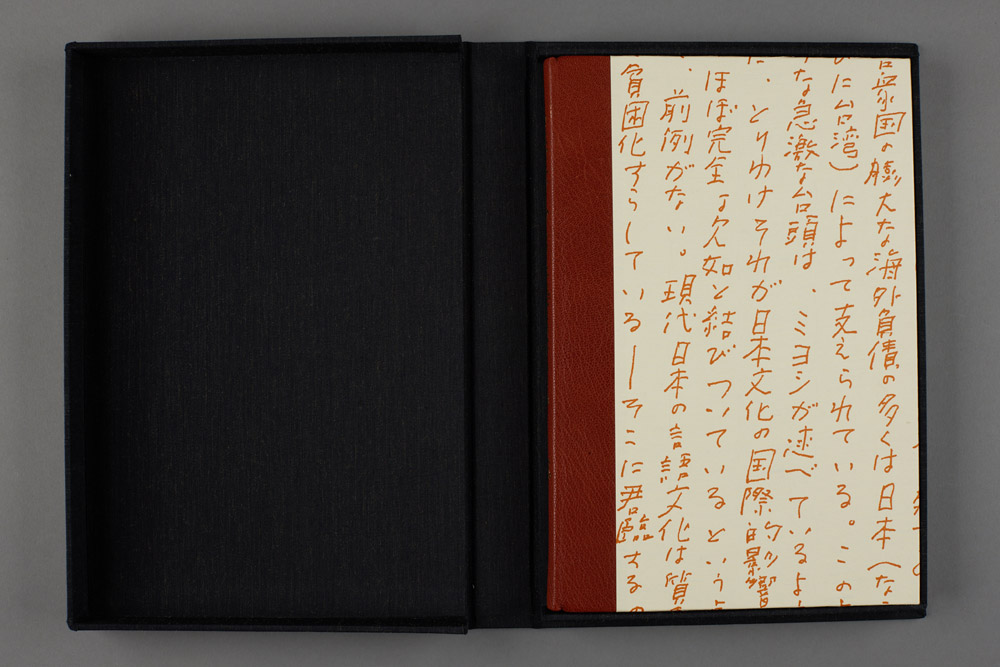 合衆国の膨大な海外負債の多くは日本(な
びに台湾)によって支えられている。このよ
うな急激な台頭は、ミヨシが述べているよ
た、とりわけそれが日本文化の国際的影響
ほぼ完全な欠如と結びついているというよ
、前例がない。現代日本の言語文化は質
貧困化すらしている—そこに君臨するの